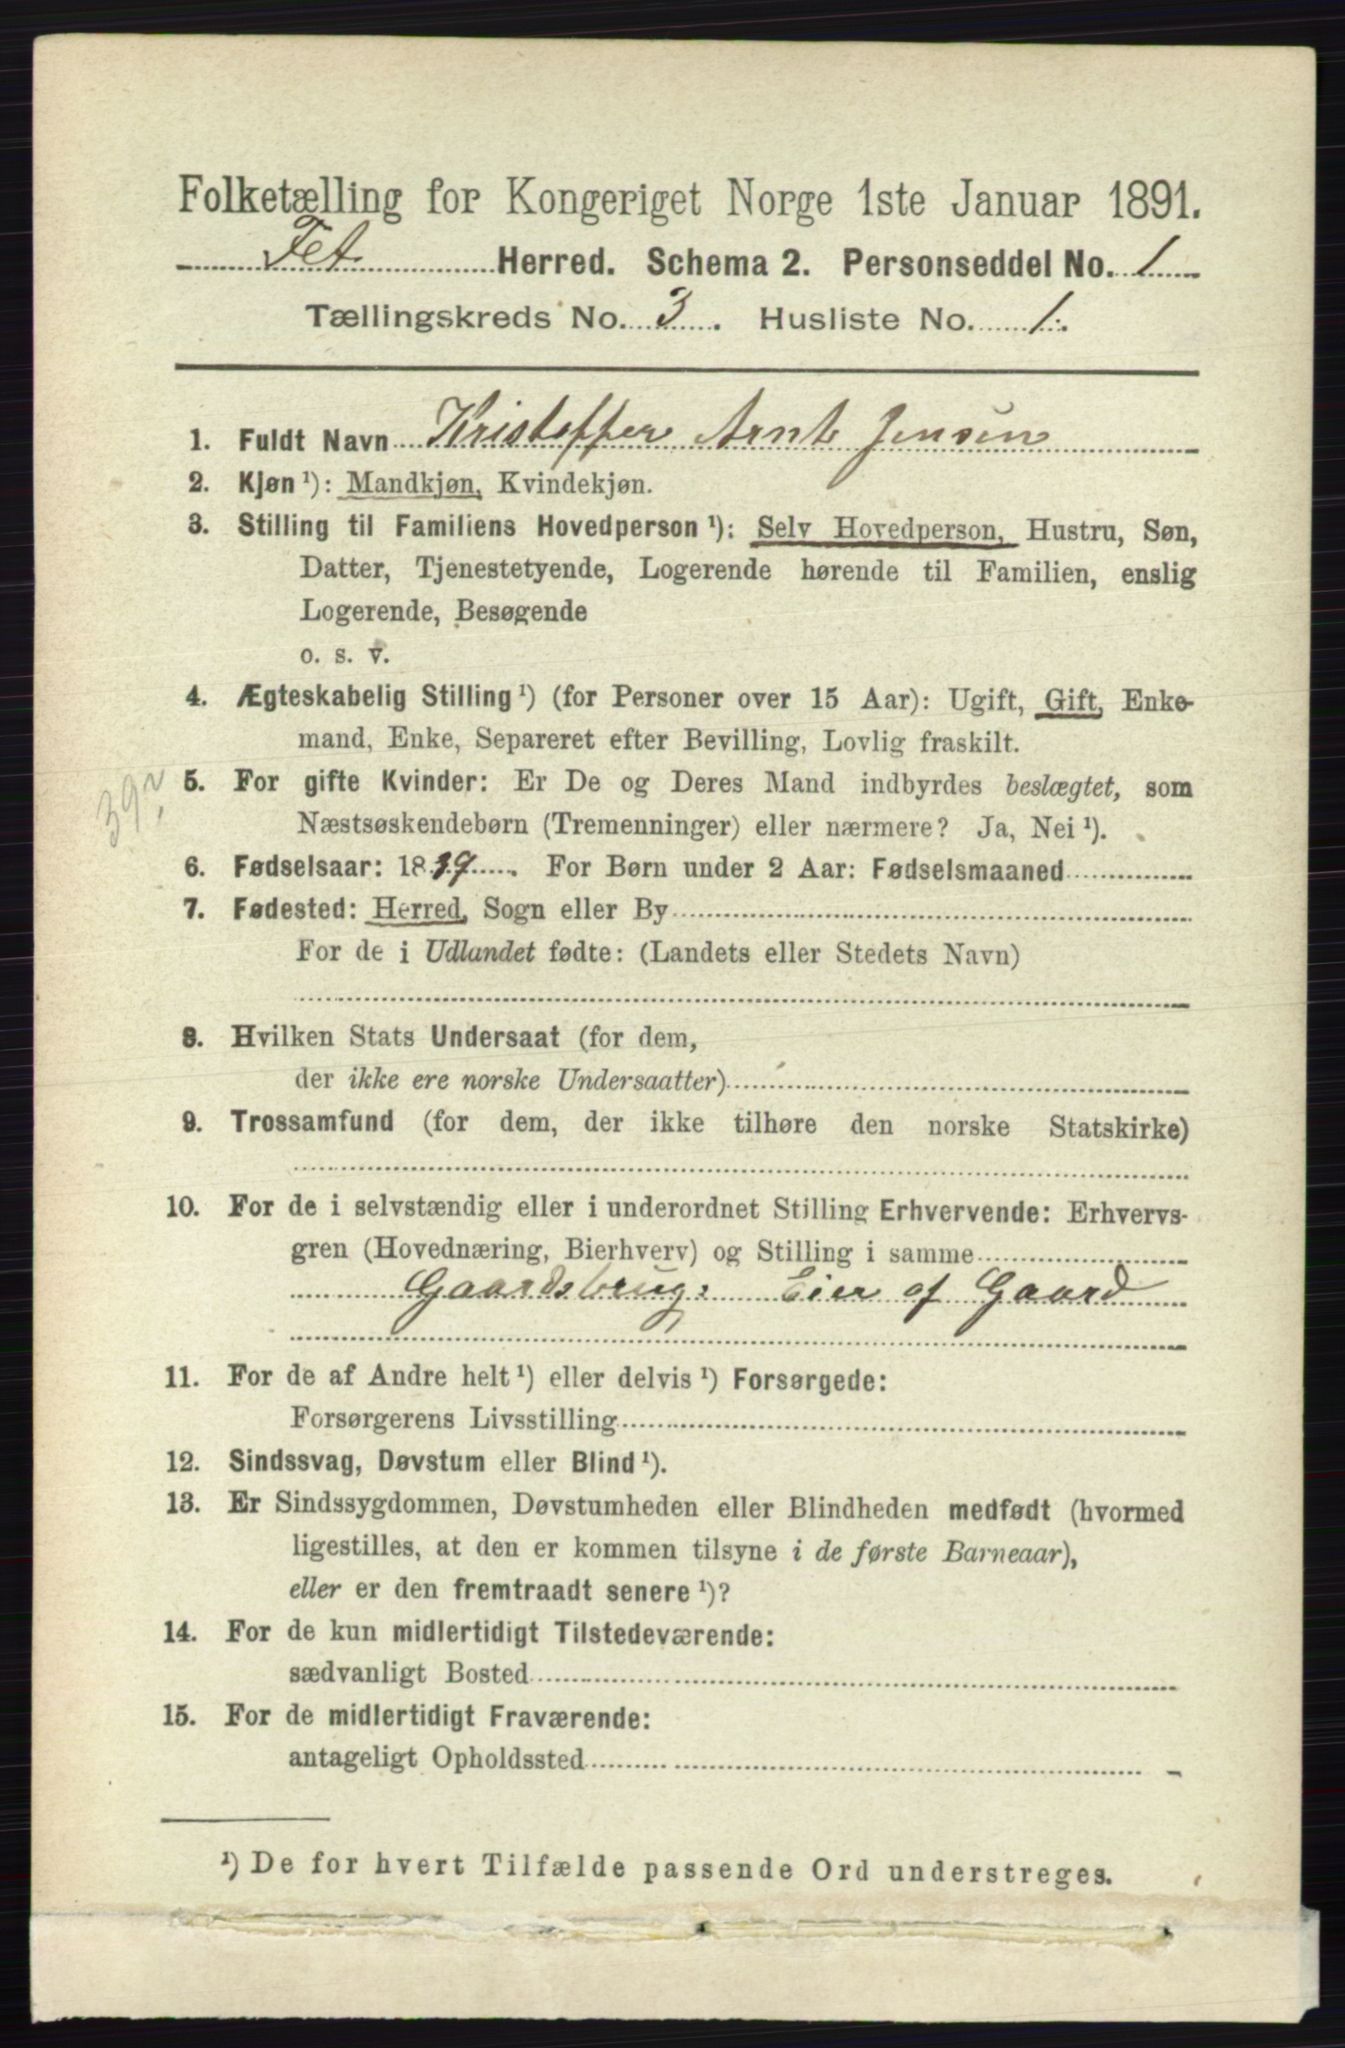 Folketælling for Kongeriget Norge 1ste Januar 1891.
Fet Herred. Schema 2. Personseddel No. 1
Tællingskreds No. 3. Husliste No. 1.
1. Fuldt Navn Kristoffer Arnt Jensen
2. Kjøn ¹): Mandkjøn, Kvindekjøn.
3. Stilling til Familiens Hovedperson ¹): Selv Hovedperson, Hustru, Søn,
Datter, Tjenestetyende, Logerende hørende til Familien, enslig
Logerende, Besøgende
o. s. v.
4. Ægteskabelig Stilling ¹) (for Personer over 15 Aar): Ugift, Gift, Enke-
mand, Enke, Separeret efter Bevilling, Lovlig fraskilt.
5. For gifte Kvinder: Er De og Deres Mand indbyrdes beslægtet, som
39?
Næstsøskendebørn (Tremenninger) eller nærmere? Ja, Nei ¹).
6. Fødselsaar: 1839. For Børn under 2 Aar: Fødselsmaaned
7. Fødested: Herred, Sogn eller By
For de i Udlandet fødte: (Landets eller Stedets Navn)
8. Hvilken Stats Undersaat (for dem,
der ikke ere norske Undersaatter)
9. Trossamfund (for dem, der ikke tilhøre den norske Statskirke)
10. For de i selvstændig eller i underordnet Stilling Erhvervende: Erhvervs-
gren (Hovednæring, Bierhverv) og Stilling i samme
Gaardsbrug: Eier af Gaard
11. For de af Andre helt ¹) eller delvis ¹) Forsørgede:
Forsørgerens Livsstilling
12. Sindssvag, Døvstum eller Blind ¹).
13. Er Sindssygdommen, Døvstumheden eller Blindheden medfødt (hvormed
ligestilles, at den er kommen tilsyne i de første Barneaar),
eller er den fremtraadt senere ¹)?
14. For de kun midlertidigt Tilstedeværende:
sædvanligt Bosted
15. For de midlertidigt Fraværende:
antageligt Opholdssted
¹) De for hvert Tilfælde passende Ord understreges.